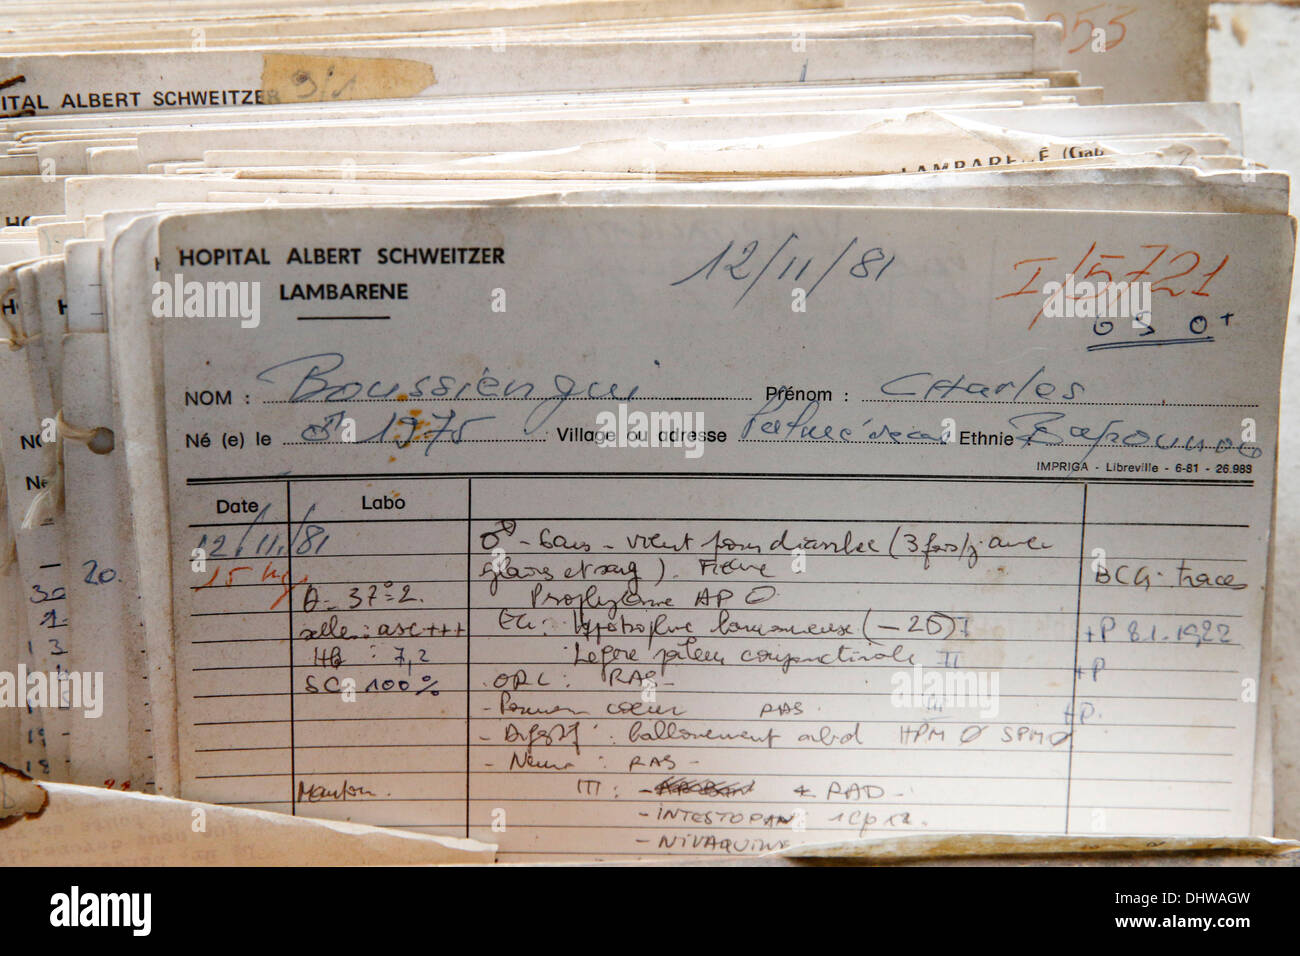 955
9/1
ITAL ALBERT SCHWEITZER
LAMBARENÉ (Gab
HOPITAL ALBERT SCHWEITZER
LAMBARENE
12/11/81
I/5721
0 S 0+
NOM : Boussiengui Prénom : CHarles
Né (e) le ♂ 1975 Village ou adresse Ethnie Bapounou
IMPRIGA - Libreville - 6-81 - 26.983
Date Labo
12/11/81 - 6ans - vient pour diarrhée (3 fois/j avec
15 kgs glaires et sang). Fièvre BCG: traces
θ = 37°2. Prophylaxie AP Ø
selles : asc +++ EG: +P 8.1.1922
Hb : 7,2 Légère pâleur conjonctivale II +P
SC: 100% ORL : RAS -
- Poumon coeur RAS. III +P.
- Digestif : ballonnement abd HPM Ø SPM Ø
- Neuro : RAS -
TTT : RAD -
- INTESTOPAN : 1cp x2.
- NIVAQUINE
20.
alamy
Image ID: DHWAGW
www.alamy.com